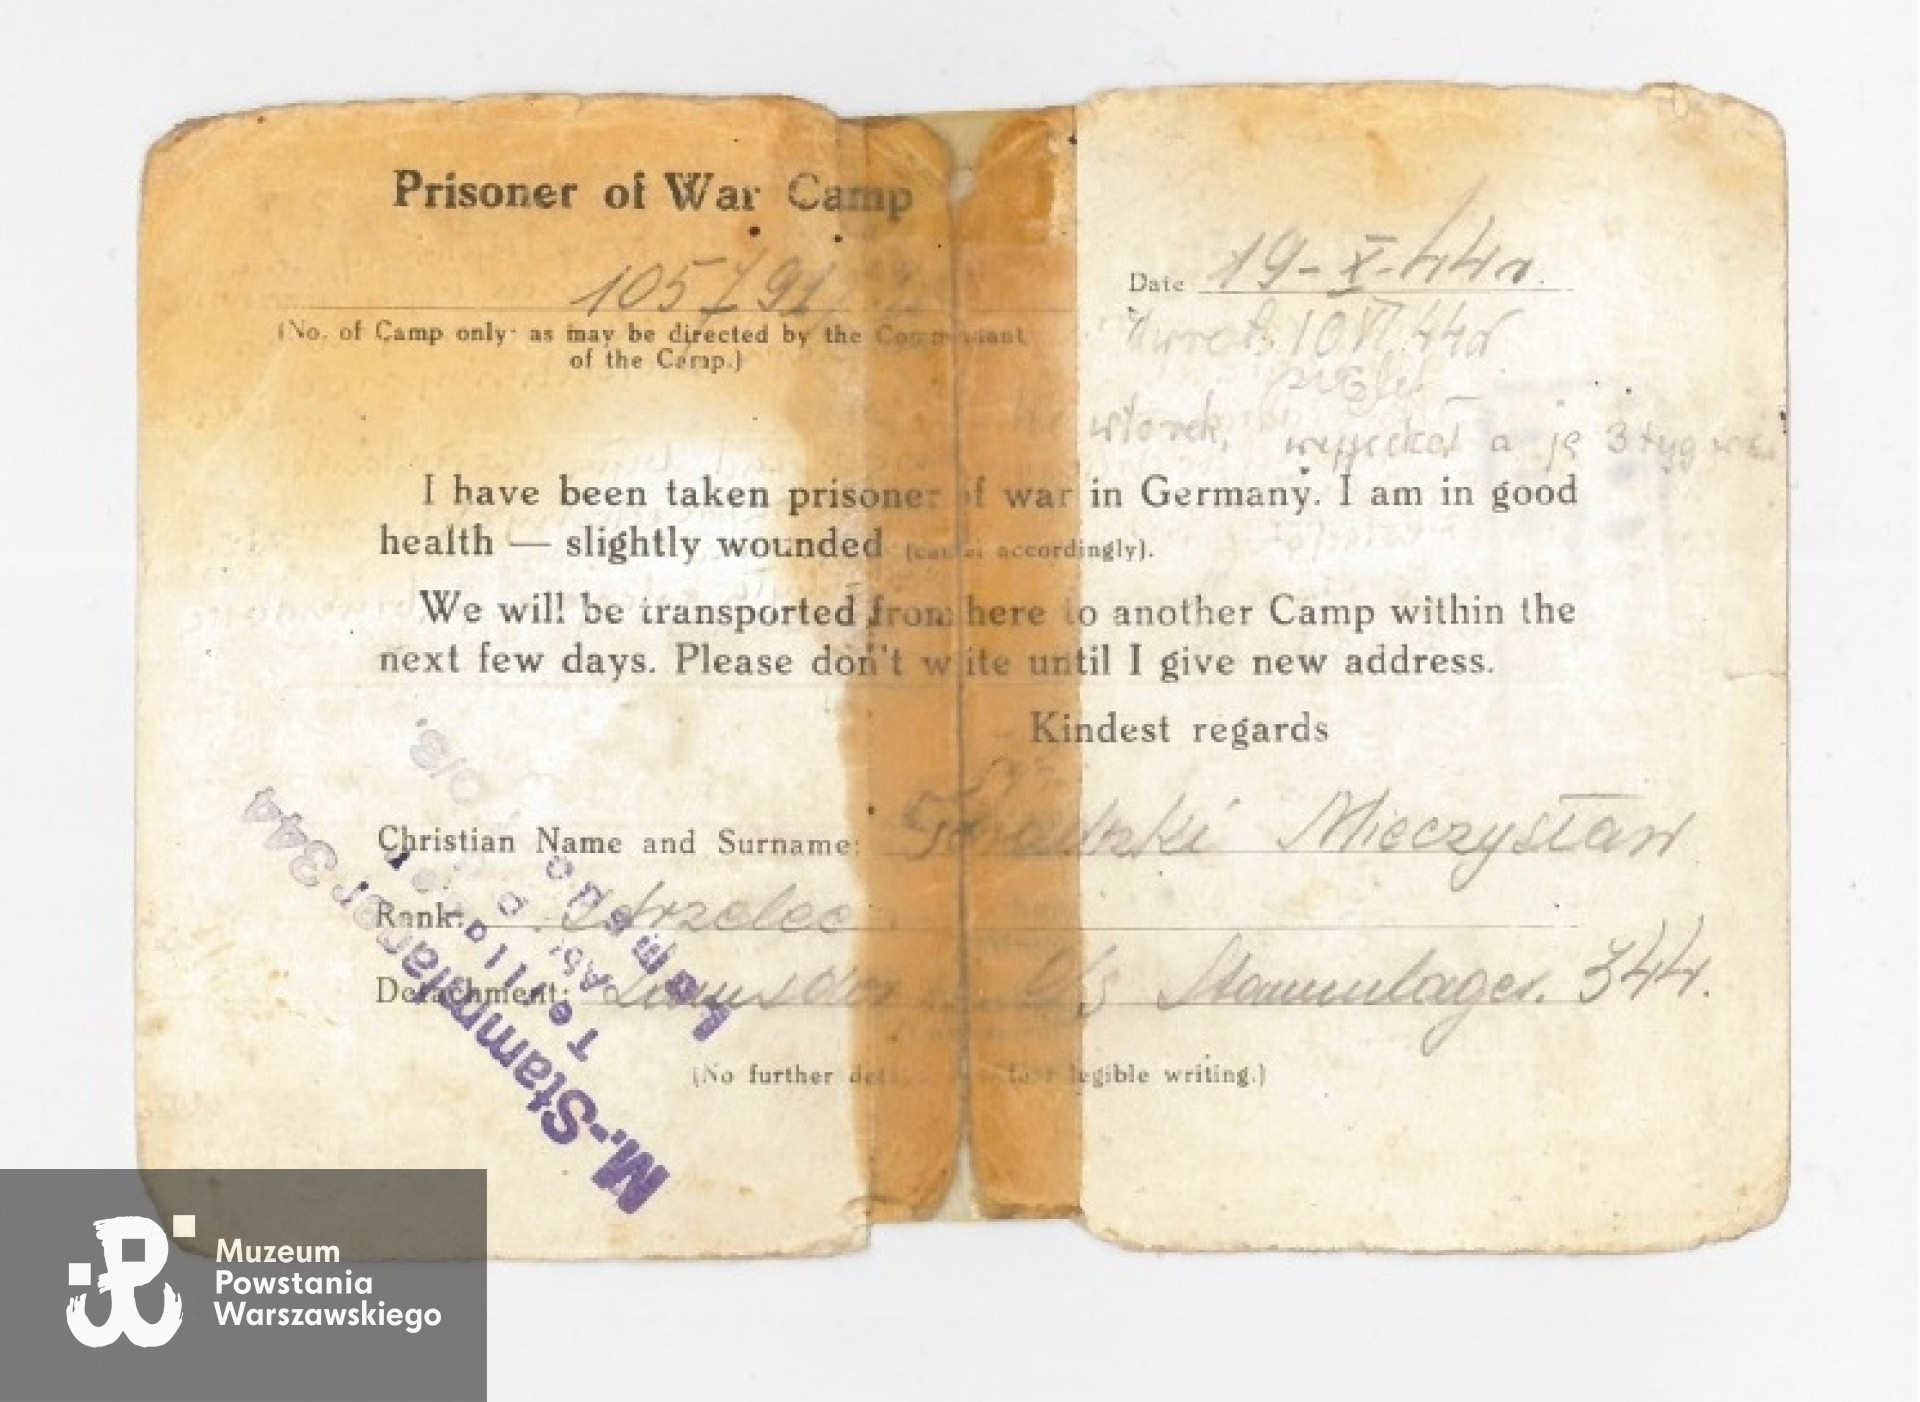 Prisoner of War Camp
105791
Date 19-X-44r.
(No. of Camp only· as may be directed by the Commandant
of the Camp.)
10 VI 44r
wtorek, a ja 3 tyg
I have been taken prisoner of war in Germany. I am in good
health — slightly wounded (cancel accordingly).
We will be transported from here to another Camp within the
next few days. Please don't write until I give new address.
Kindest regards
Christian Name and Surname: Mieczysław
Rank: Strzelec
Detachment: Lamsdor O/S Stammlager. 344.
(No further legible writing.)
M.-Stammlager 344
Teillager
Lamsdorf O/S.
Muzeum
Powstania
Warszawskiego